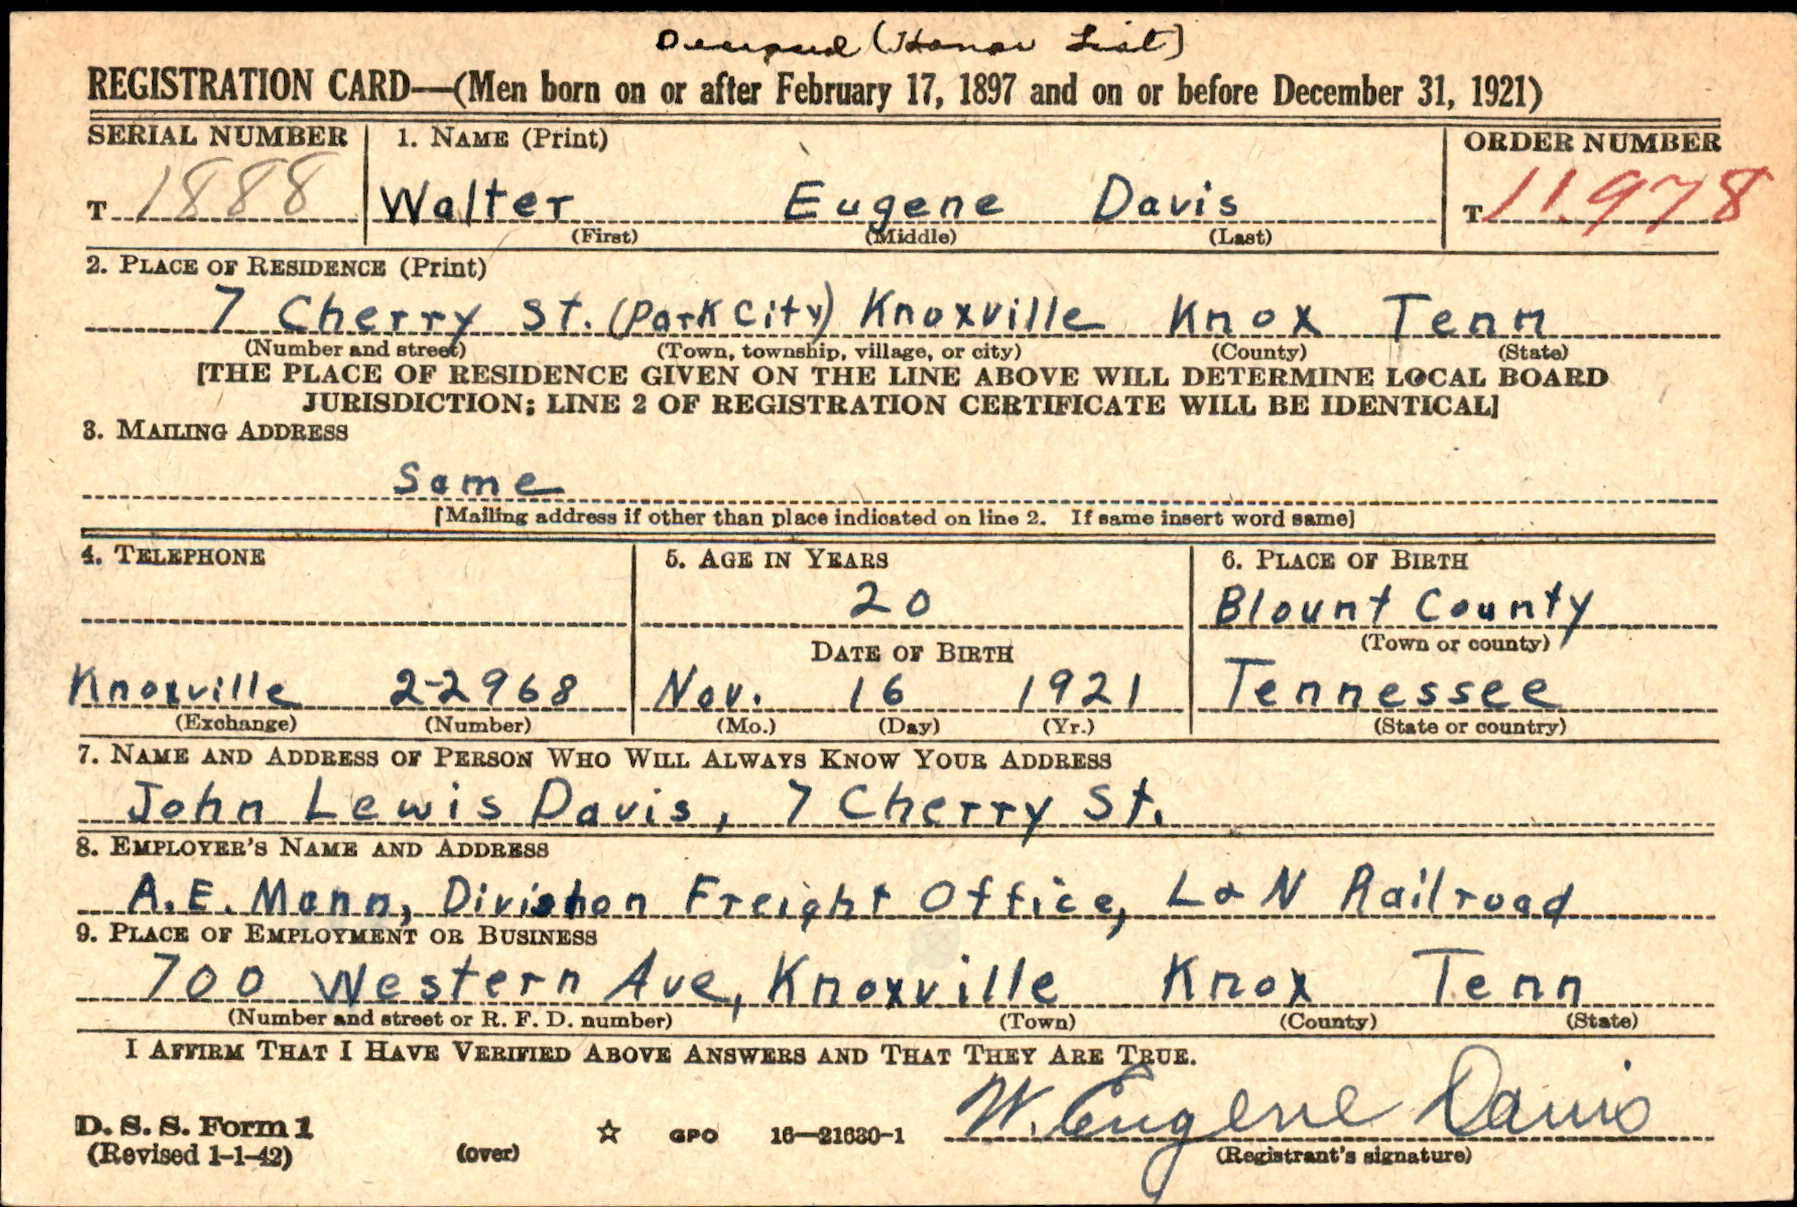 Deceased (Honor List)
REGISTRATION CARD—(Men born on or after February 17, 1897 and on or before December 31, 1921)
SERIAL NUMBER 1. NAME (Print) ORDER NUMBER
T 1888 Walter Eugene Davis T 11,978
(First) (Middle) (Last)
2. PLACE OF RESIDENCE (Print)
7 Cherry St. (Park City) Knoxville Knox Tenn
(Number and street) (Town, township, village, or city) (County) (State)
[THE PLACE OF RESIDENCE GIVEN ON THE LINE ABOVE WILL DETERMINE LOCAL BOARD
JURISDICTION; LINE 2 OF REGISTRATION CERTIFICATE WILL BE IDENTICAL]
3. MAILING ADDRESS
Same
[Mailing address if other than place indicated on line 2. If same insert word same]
4. TELEPHONE 5. AGE IN YEARS 6. PLACE OF BIRTH
20 Blount County
DATE OF BIRTH (Town or county)
Knoxville 2-2968 Nov. 16 1921 Tennessee
(Exchange) (Number) (Mo.) (Day) (Yr.) (State or country)
7. NAME AND ADDRESS OF PERSON WHO WILL ALWAYS KNOW YOUR ADDRESS
John Lewis Davis, 7 Cherry St.
8. EMPLOYER'S NAME AND ADDRESS
A.E. Mann, Division Freight Office, L & N Railroad
9. PLACE OF EMPLOYMENT OR BUSINESS
700 Western Ave, Knoxville Knox Tenn
(Number and street or R. F. D. number) (Town) (County) (State)
I AFFIRM THAT I HAVE VERIFIED ABOVE ANSWERS AND THAT THEY ARE TRUE.
D. S. S. Form 1 W. Eugene Davis
(Revised 1-1-42) (over) ☆ GPO 16—21630-1 (Registrant's signature)